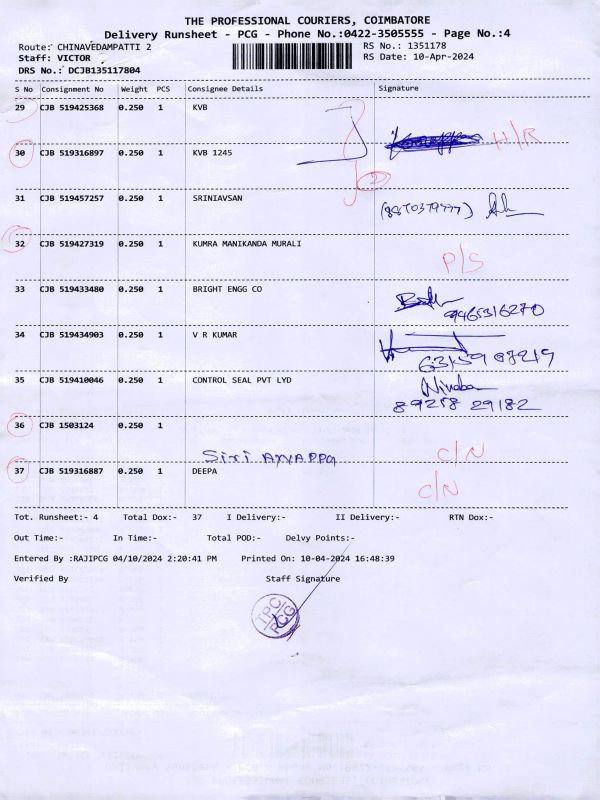 THE PROFESSIONAL COURIERS, COIMBATORE
Delivery Runsheet - PCG - Phone No.:0422-3505555 - Page No.:4
Route: CHINAVEDAMPATTI 2 RS No.: 1351178
Staff: VICTOR RS Date: 10-Apr-2024
DRS No.: DCJB135117804
S No Consignment No Weight PCS Consignee Details Signature
29 CJB 519425368 0.250 1 KVB
H/R
30 CJB 519316897 0.250 1 KVB 1245
2
31 CJB 519457257 0.250 1 SRINIAVSAN
32 CJB 519427319 0.250 1 KUMRA MANIKANDA MURALI
P/S
33 CJB 519433480 0.250 1 BRIGHT ENGG CO
9465316270
34 CJB 519434903 0.250 1 V R KUMAR
35 CJB 519410046 0.250 1 CONTROL SEAL PVT LYD
89258 29182
36 CJB 1503124 0.250 1
Siri AYYAPPA C/N
37 CJB 519316887 0.250 1 DEEPA C/N
Tot. Runsheet:- 4 Total Dox:- 37 I Delivery:- II Delivery:- RTN Dox:-
Out Time:- In Time:- Total POD:- Delvy Points:-
Entered By :RAJIPCG 04/10/2024 2:20:41 PM Printed On: 10-04-2024 16:48:39
Verified By Staff Signature
TPC
PCG